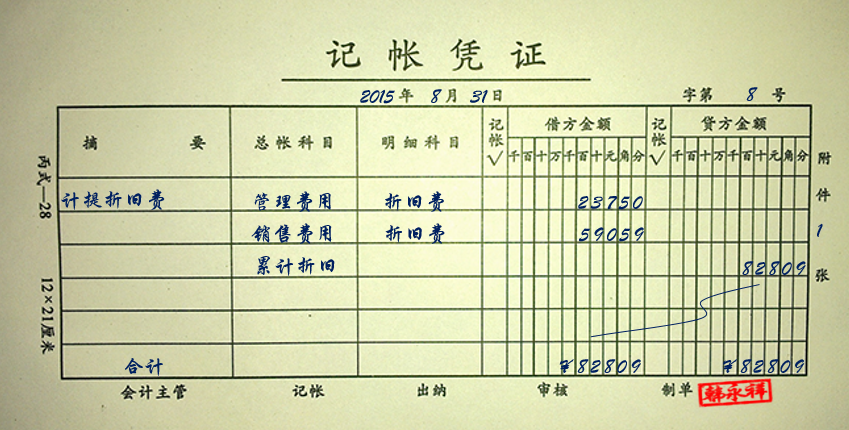 记帐凭证
2015年 8月 31日 字第 8 号
摘要 总帐科目 明细科目 记帐√ 借方金额 记帐√ 贷方金额
千百十万千百十元角分 千百十万千百十元角分
计提折旧费 管理费用 折旧费 23750
销售费用 折旧费 59059
累计折旧 82809
合计 ¥82809 ¥82809
会计主管 记帐 出纳 审核 制单 韩永祥
附件 1 张
丙式—28 12×21厘米